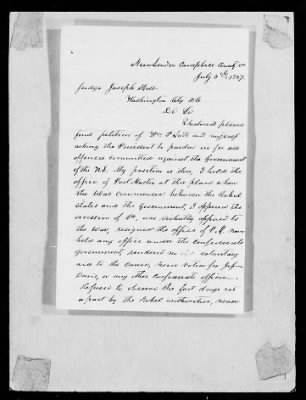 New London Campbell County Va
July 3rd, 1867.
Judge Joseph Holt
Washington City D.C.
Dr Sir
Enclosed please
find petition of Wm P. and myself
asking the President to pardon us for all
offences committed against the Government
of the U.S. My position is this, I held the
office of Post Master at this place when
the War commenced between the Rebel
States and the Government, I opposed the
secession of Va, was violently opposed to
the War, resigned the office of P.M. never
held any office under the Confederate
government, rendered no voluntary
aid to the cause, never voted for Jeff
Davis, or any other Confederate officer.
Refused to observe the fast days set
apart by the Rebel authorities, never